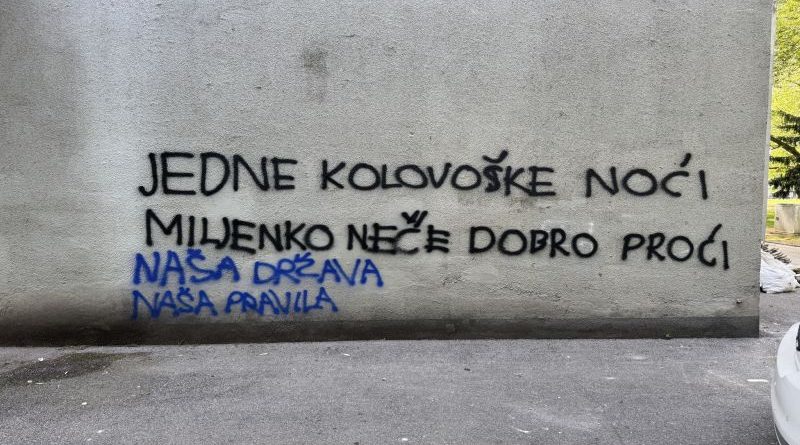 JEDNE KOLOVOŠKE NOĆI
MILJENKO NEČE DOBRO PROĆI
NAŠA DRŽAVA
NAŠA PRAVILA